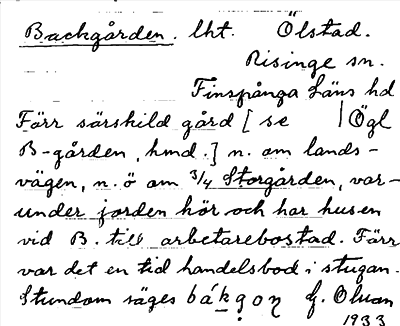 Backgården. lht. Ölstad.
Risinge sn.
Finspånga Läns hd
Förr särskild gård [se | Ögl
B-gården, hmd.] n. om lands-
vägen, n.ö om 3/4 Storgården, var-
under jorden hör och har husen
vid B. till arbetarebostad. Förr
var det en tid handelsbod i stugan.
Stundom säges
1933